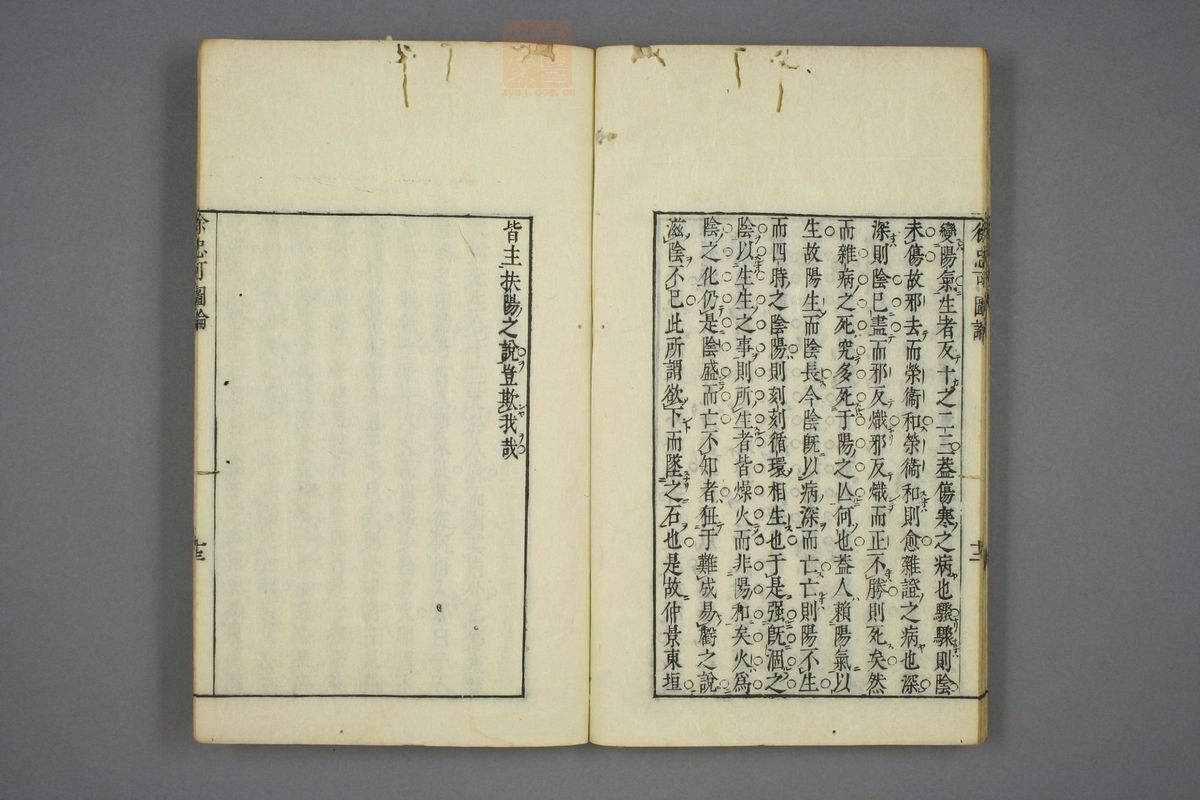 變陽氣生者反十之二三蓋傷寒之病也驟驟則陰
未傷故邪去而榮衞和榮衞和則愈雜證之病也深
深則陰已盡而邪反熾邪反熾而正不勝則死矣然
而雜病之死究多死于陽之亾何也蓋人賴陽氣以
生故陽生而陰長今陰旣以病深而亡亡則陽不生
而四時之陰陽則刻刻循環相生也于是强旣涸之
陰以生生之事則所生者皆燥火而非陽和矣火爲
陰之化仍是陰盛而亡不知者狃于難成易虧之說
滋陰不已此所謂欲下而墜之石也是故仲景東垣
皆主扶陽之說豈欺我哉
徐忠可圖論
十二
徐忠可圖論
十三